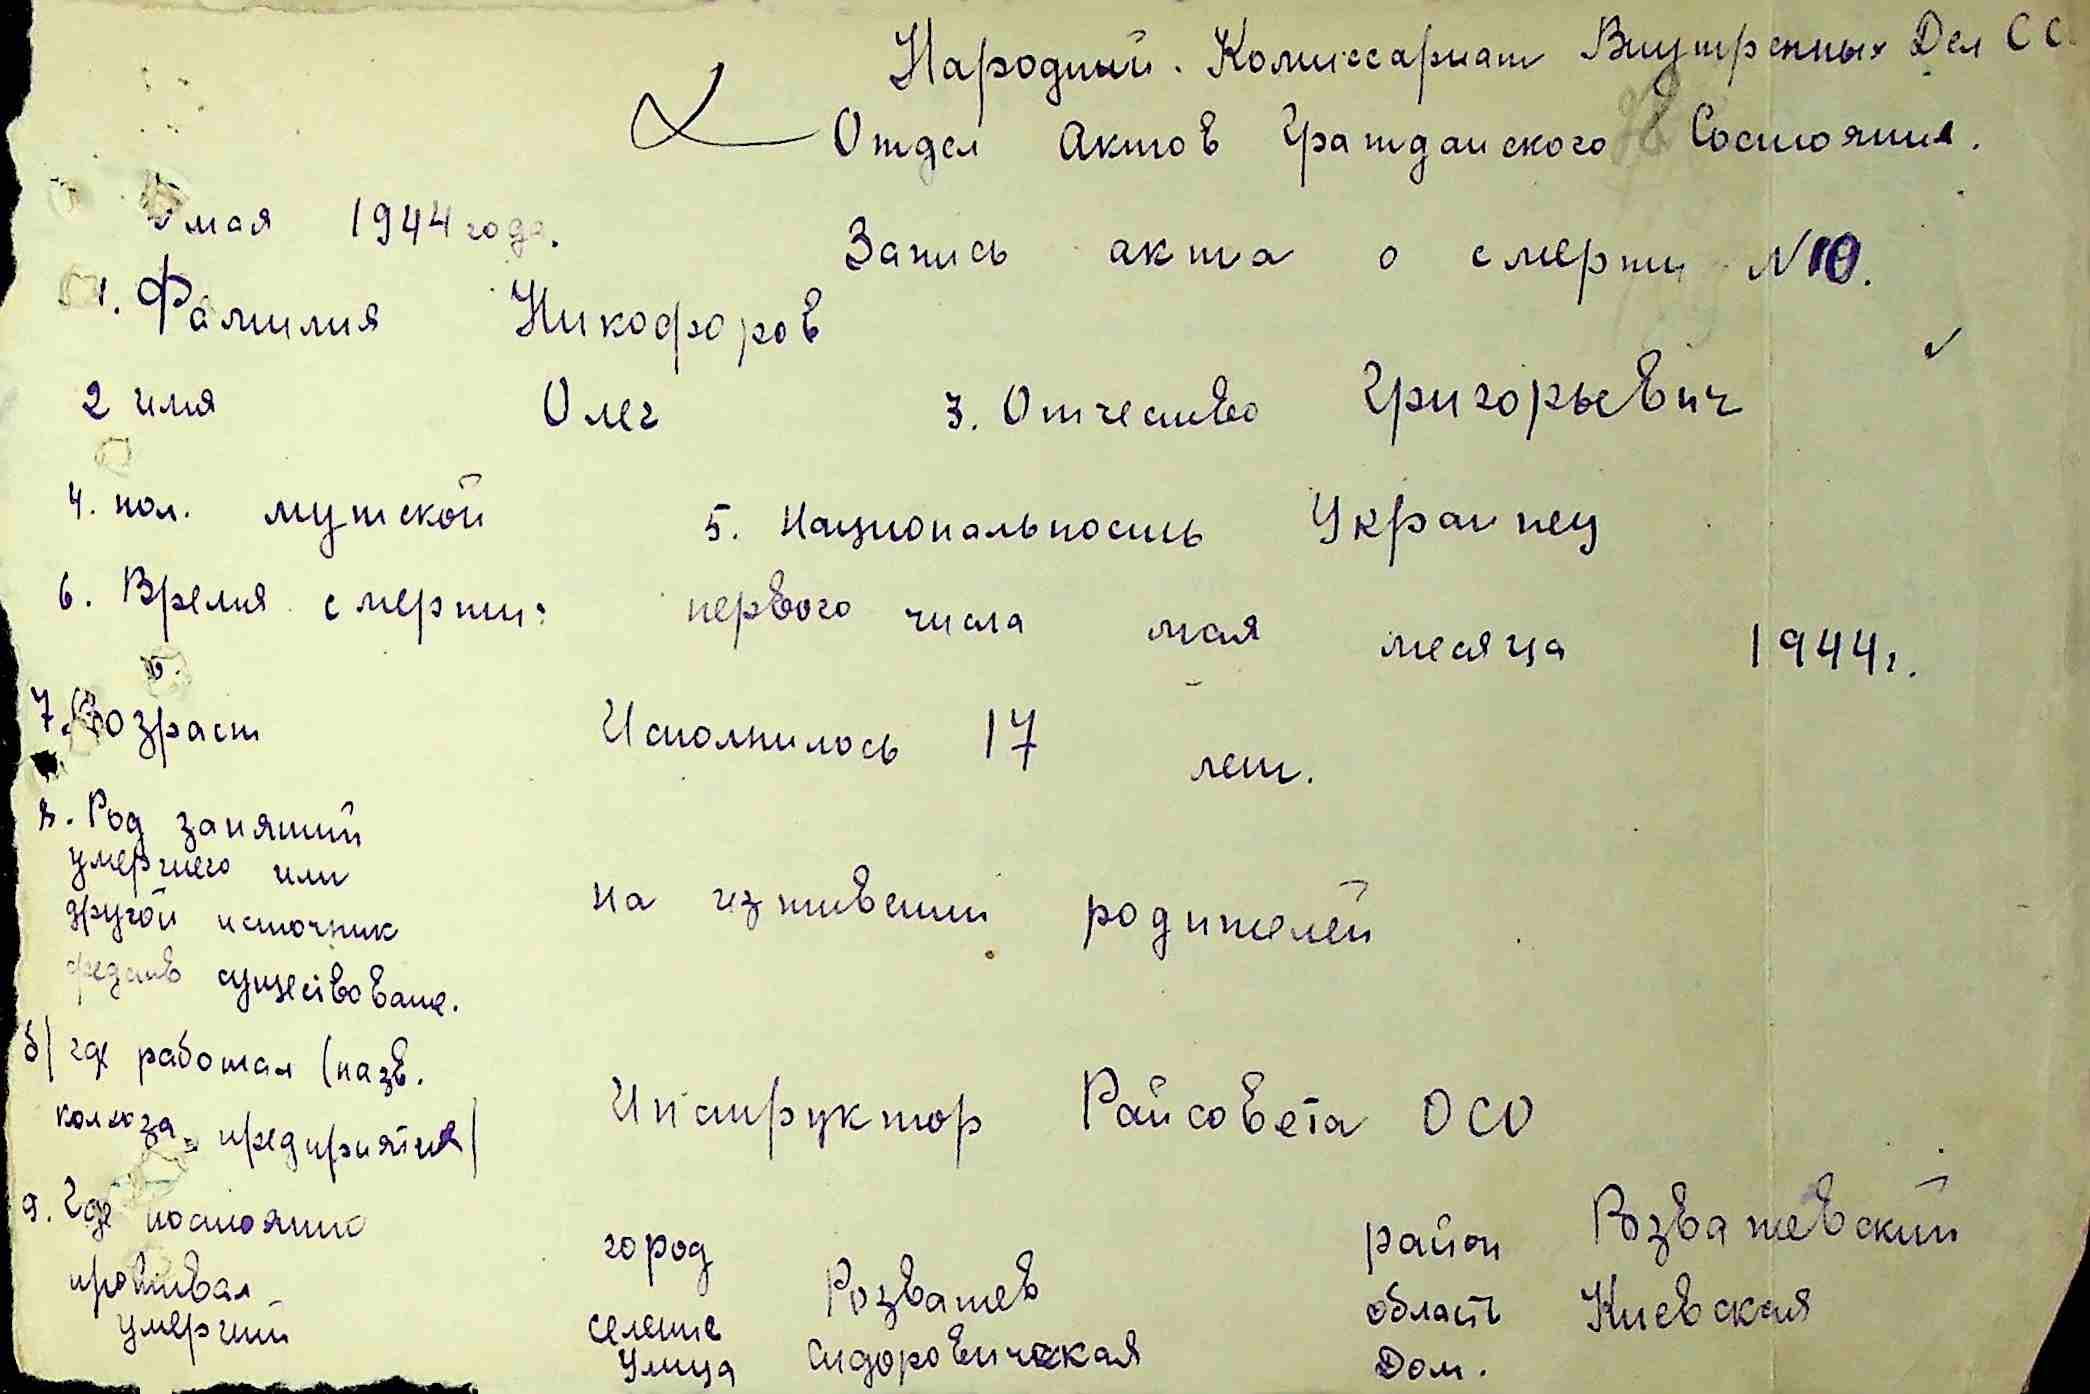 Народный. Комиссариат Внутренных Дел СС
Отдел Актов Гражданского Состояния.
мая 1944 года.
Запись акта о смерти N 10.
1. Фамилия Никофоров
2 имя Олег 3. Отчество Григорьевич
4. пол. мужской 5. Национальность Украинец
6. Время смерти: первого числа мая месяца 1944 г.
7. Возраст Исполнилось 17 лет.
8. Род занятий
умершего или
другой источник
средств существование.
на изживении родителей
б) где работал (назв.
колхоза, предприятия)
Инструктор Райсовета ОСО
9. Где постоянно
проживал
умерший
город
селение Розважев
улица Сидоровичская
район Розважевский
область Киевская
Дом.